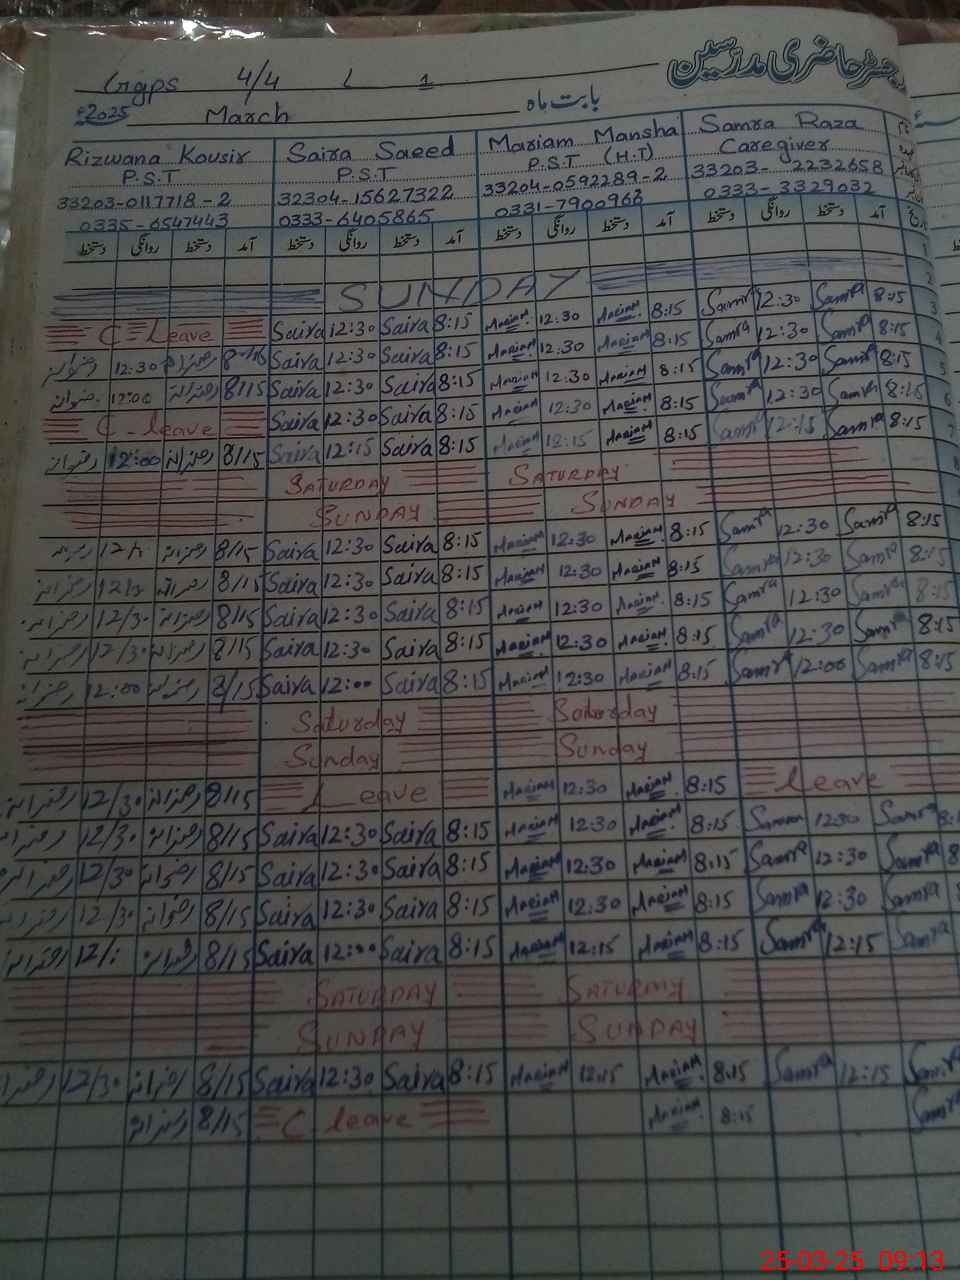 رجسٹر حاضری مدرسین
Ggps 4/4 L 1
2025ء March بابت ماہ
Rizwana Kousir Saira Saeed Mariam Mansha Samra Raza
P.S.T P.S.T P.S.T (H.T) Caregiver
33203-0117718-2 32304-15627322 33204-0592289-2 33203-2232658
0335-6547443 0333-6405865 0331-7900966 0333-3329032
دستخط روانگی دستخط آمد دستخط روانگی دستخط آمد دستخط روانگی دستخط آمد دستخط روانگی دستخط آمد
1
SUNDAY 2
C-Leave Saira 12:30 Saira 8:15 Mariam 12:30 Mariam 8:15 Samra 12:30 Samra 8:15 3
رضوانہ 12:30 رضوانہ Saira 12:30 Saira 8:15 Mariam 12:30 Mariam 8:15 Samra 12:30 Samra 8:15 4
رضوانہ 12:00 رضوانہ 8/15 Saira 12:30 Saira 8:15 Mariam 12:30 Mariam 8:15 Samra 12:30 Samra 8:15 5
C-leave Saira 12:30 Saira 8:15 Mariam 12:30 Mariam 8:15 Samra 12:30 Samra 8:15 6
رضوانہ 12:00 رضوانہ 8/15 Saira 12:15 Saira 8:15 Mariam 12:15 Mariam 8:15 Samra 12:15 Samra 8:15 7
SATURDAY SATURDAY 8
SUNDAY SUNDAY
رضوانہ رضوانہ 8/15 Saira 12:30 Saira 8:15 Mariam 12:30 Mariam 8:15 Samra 12:30 Samra 8:15
رضوانہ رضوانہ 8/15 Saira 12:30 Saira 8:15 Mariam 12:30 Mariam 8:15 Samra 12:30 Samra 8:15
رضوانہ 12/30 رضوانہ 8/15 Saira 12:30 Saira 8:15 Mariam 12:30 Mariam 8:15 Samra 12:30 Samra 8:15
رضوانہ 12/30 رضوانہ 8/15 Saira 12:30 Saira 8:15 Mariam 12:30 Mariam 8:15 Samra 12:30 Samra 8:15
رضوانہ 12:00 رضوانہ 8/15 Saira 12:00 Saira 8:15 Mariam 12:30 Mariam 8:15 Samra 12:00 Samra 8:15
Saturday Saturday
Sunday Sunday
رضوانہ 12/30 رضوانہ 8/15 Leave Mariam 12:30 Mariam 8:15 Leave
رضوانہ 12/30 رضوانہ 8/15 Saira 12:30 Saira 8:15 Mariam 12:30 Mariam 8:15 Samra 12:30 Samra
رضوانہ 12/30 رضوانہ 8/15 Saira 12:30 Saira 8:15 Mariam 12:30 Mariam 8:15 Samra 12:30 Samra
رضوانہ 12/30 رضوانہ 8/15 Saira 12:30 Saira 8:15 Mariam 12:30 Mariam 8:15 Samra 12:30 Samra
رضوانہ رضوانہ 8/15 Saira 12:00 Saira 8:15 Mariam 12:15 Mariam 8:15 Samra 12:15 Samra
SATURDAY SATURDAY
SUNDAY SUNDAY
رضوانہ 12/30 رضوانہ 8/15 Saira 12:30 Saira 8:15 Mariam 12:15 Mariam 8:15 Samra 12:15 Samra
رضوانہ 8/15 C-leave Mariam 8:15 Samra
25-03-25 09:13